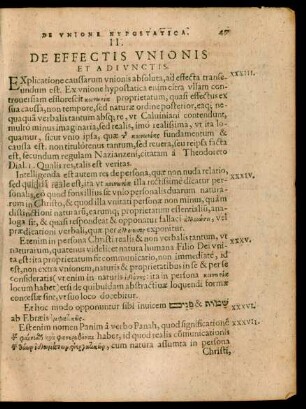 DE VNIONE HYPOSTATICA.
II.
DE EFFECTIS VNIONIS
ET ADIVNCTIS.
EXplicatione causarum vnionis absoluta, ad effecta transe- XXXIII.
undum est. Ex vnione hypostatica enim citra vllam con-
trouersiam efflorescit κοινωνία proprietatum, quasi effectus ex
sita causa, non tempore, sed naturæ ordine posterior, eaq́; ne-
qua quã verbalis tantum absq; re, vt Caluiniani contendunt,
multo minus imaginaria, sed realis, imo realissima, vt ita lo-
quamur, sicut vnio ipsa, quæ κοινωνίας fundamentum &
causa est, non titulotenus tantum, sed reuera, seu reipsa facta
est, secundum regulam Nazianzeni, citatam à Theodoreto
Dial. Qualis res, talis est & veritas.
Intelligenda est autem res de persona, quæ non nuda relatio, XXXIV.
sed quiddã reale est, ita vt κοινωνία illa rectissime dicatur per-
sonalis, eo quod fons illius sit vnio personalis duarum natura-
rum in Christo, & quod illa vnionis personali non minus, quàm
distinctioni naturarũ, earumq; proprietatum essentialiũ, ana-
loga sit, & quasi respondeat & opponatur fallaci
prædicationi verbali, quæ per exponitur.
Etenim in persona Christi realis & non verbalis tantum, vt XXXV.
naturarum, quatenus videlicet natura humana Filio Dei vni-
ta est ita proprietatum sit communicatio, non immediatè, id
est, non extra vnionum, naturis & proprietatibus in se & per se
consideratis, vt enim in naturis ita in persona κοινωνία
locum habet, etsi de quibusdam abstractiuæ loquendi formæ
concessæ sine, vt suo loco docebitur.
Et hoc modo opponuntur sibi inuicem שמות & פנים XXXVI.
ab Ebræis
Est enim nomen Panim à verbo Panah, quod significationẽ XXXVII.
habet, id quod realis cõmunicationis
cum natura assumta in persona
Christi,